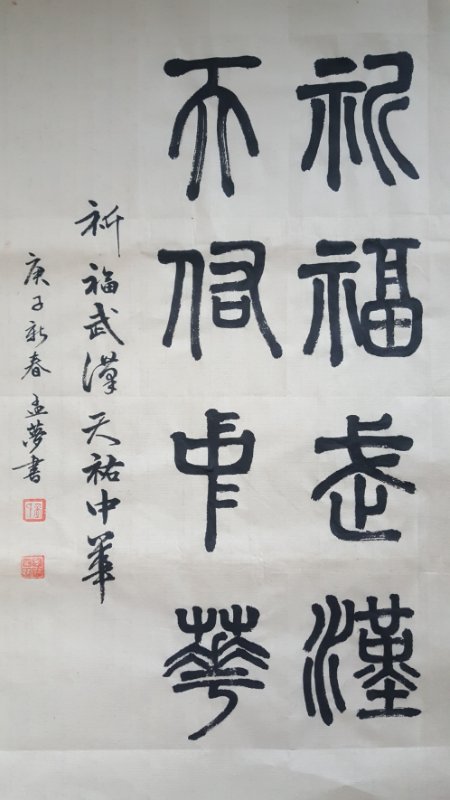 祈福武漢
天佑中華
祈福武漢天祐中華
庚子新春孟夢書